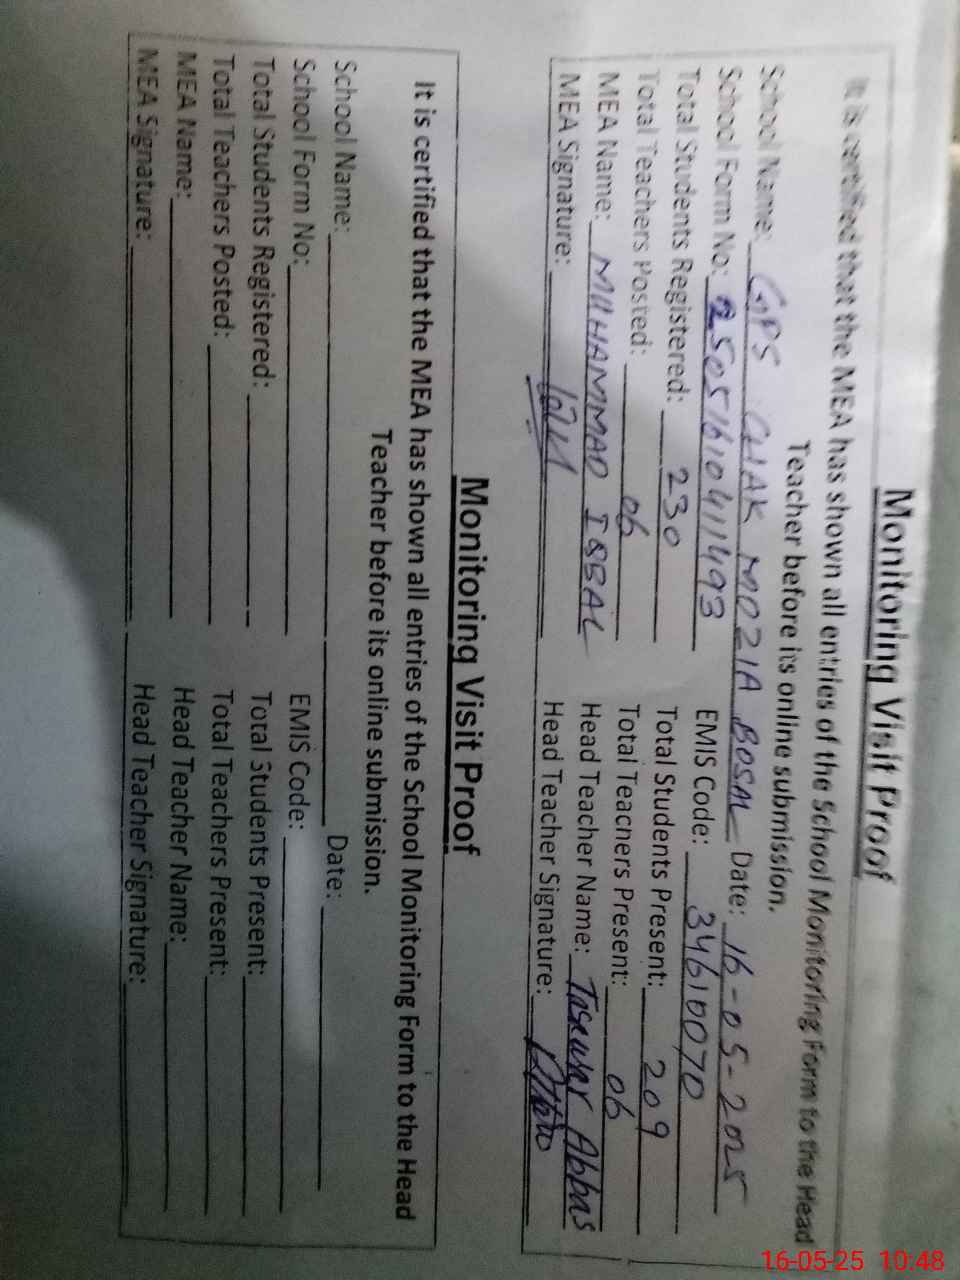 Monitoring Visit Proof
It is certified that the MEA has shown all entries of the School Monitoring Form to the Head
Teacher before its online submission.
School Name: GPS CHAK MOZIA BOSAL Date: 16-05-2025
School Form No: 25051610411493 EMIS Code: 34610070
Total Students Registered: 230 Total Students Present: 209
Total Teachers Posted: 06 Total Teachers Present: 06
MEA Name: MUHAMMAD IQBAL Head Teacher Name: Abbas
MEA Signature: Head Teacher Signature:
Monitoring Visit Proof
It is certified that the MEA has shown all entries of the School Monitoring Form to the Head
Teacher before its online submission.
School Name: Date:
School Form No: EMIS Code:
Total Students Registered: Total Students Present:
Total Teachers Posted: Total Teachers Present:
MEA Name: Head Teacher Name:
MEA Signature: Head Teacher Signature:
16-05-25 10:48